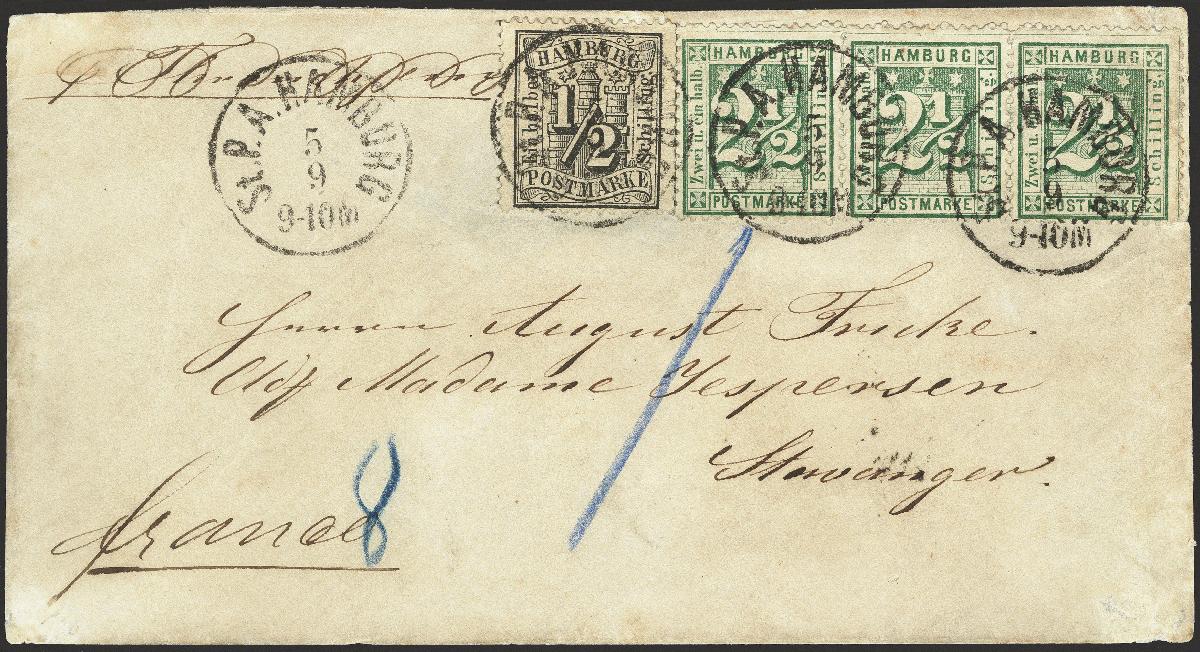 St.P.A. HAMBURG
5
9
9-10M
HAMBURG
Ein halber
1/2
Schilling
POSTMARKE
HAMBURG
Zwei u. ein halb
2 1/2
Schilling
POSTMARKE
HAMBURG
2 1/2
Schilling
POSTMARKE
HAMBURG
Zwei u. ein halb
2 1/2
Schilling
POSTMARKE
HAMBURG
9-10M
HAMBURG
9
9-10M
Herrn August Fricke.
Madame Jespersen
Stavanger.
franco
8